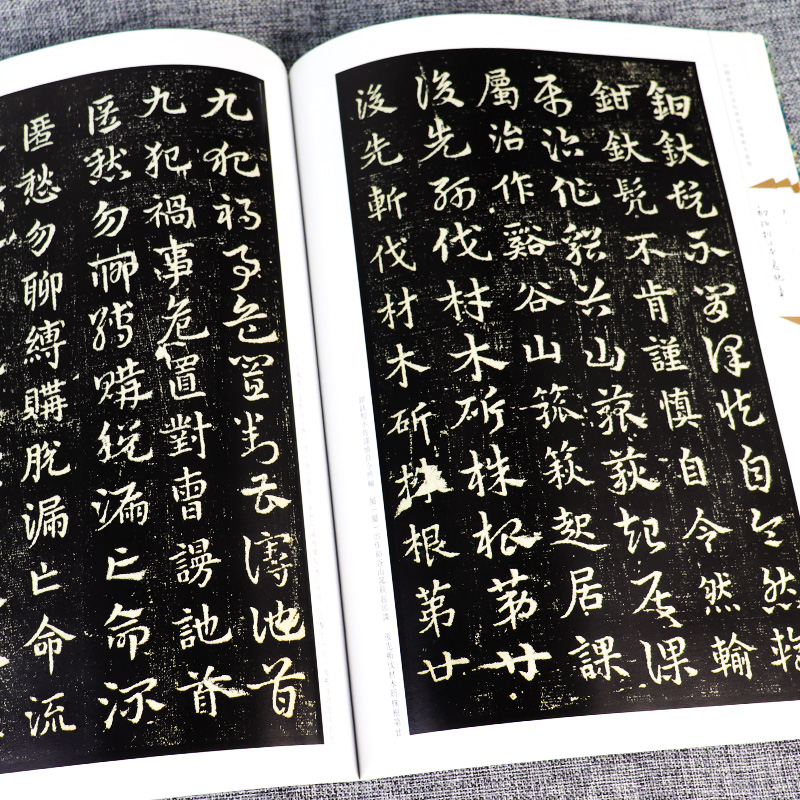 鉗釱髡不肯謹慎自令然輸
鉗釱髡不肯謹慎自令然輸
屬治作谿谷山箛篍起居課
屬治作谿谷山箛篍起居課
浚先斬伐材木斫株根第廿
浚先斬伐材木斫株根第廿
九犯禍事危置對曹謾訑首
九犯禍事危置對曹謾訑首
匿愁勿聊縛購脫漏亡命流
匿愁勿聊縛購脫漏亡命流